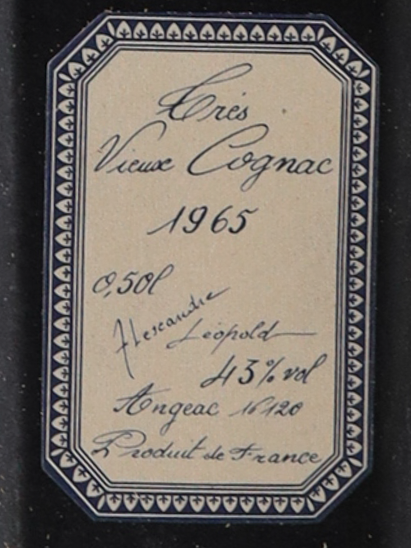 Très
Vieux Cognac
1965
0,50l
Alexandre
Léopold
43% vol
Angeac 16120
Produit de France